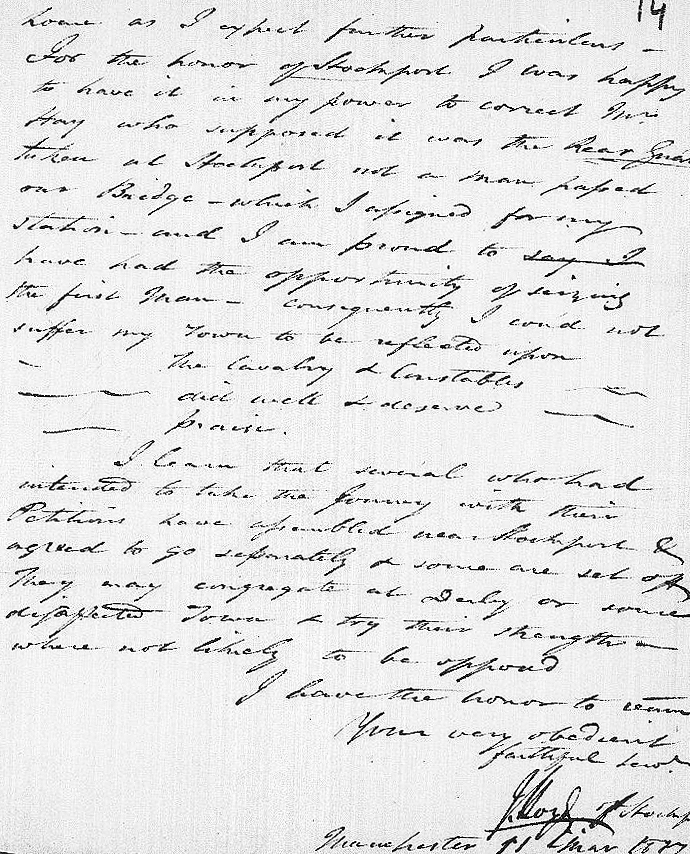 14
home as I expect further particulars —
For the honor of Stockport I was happy
to have it in my power to correct Mr
Hay who supposed it was the Rear Guar
taken at Stockport not a man passed
our Bridge — which I assigned for my
station — and I am proud to say I
have had the opportunity of seizing
the first Man — consequently I could not
suffer my Town to be reflected upon
The Cavalry & Constables
did well & deserve
praise.
I learn that several who had
intended to take the Journey with their
Petitions have assembled near Stockport &
agreed to go separately & some are set off
They may congregate at Derby or some
disaffected Town & try their strength —
where not likely to be opposed
I have the honor to remain
Your very obedient
faithful servt
J Lloyd of Stockp
Manchester 11 Mar 1817